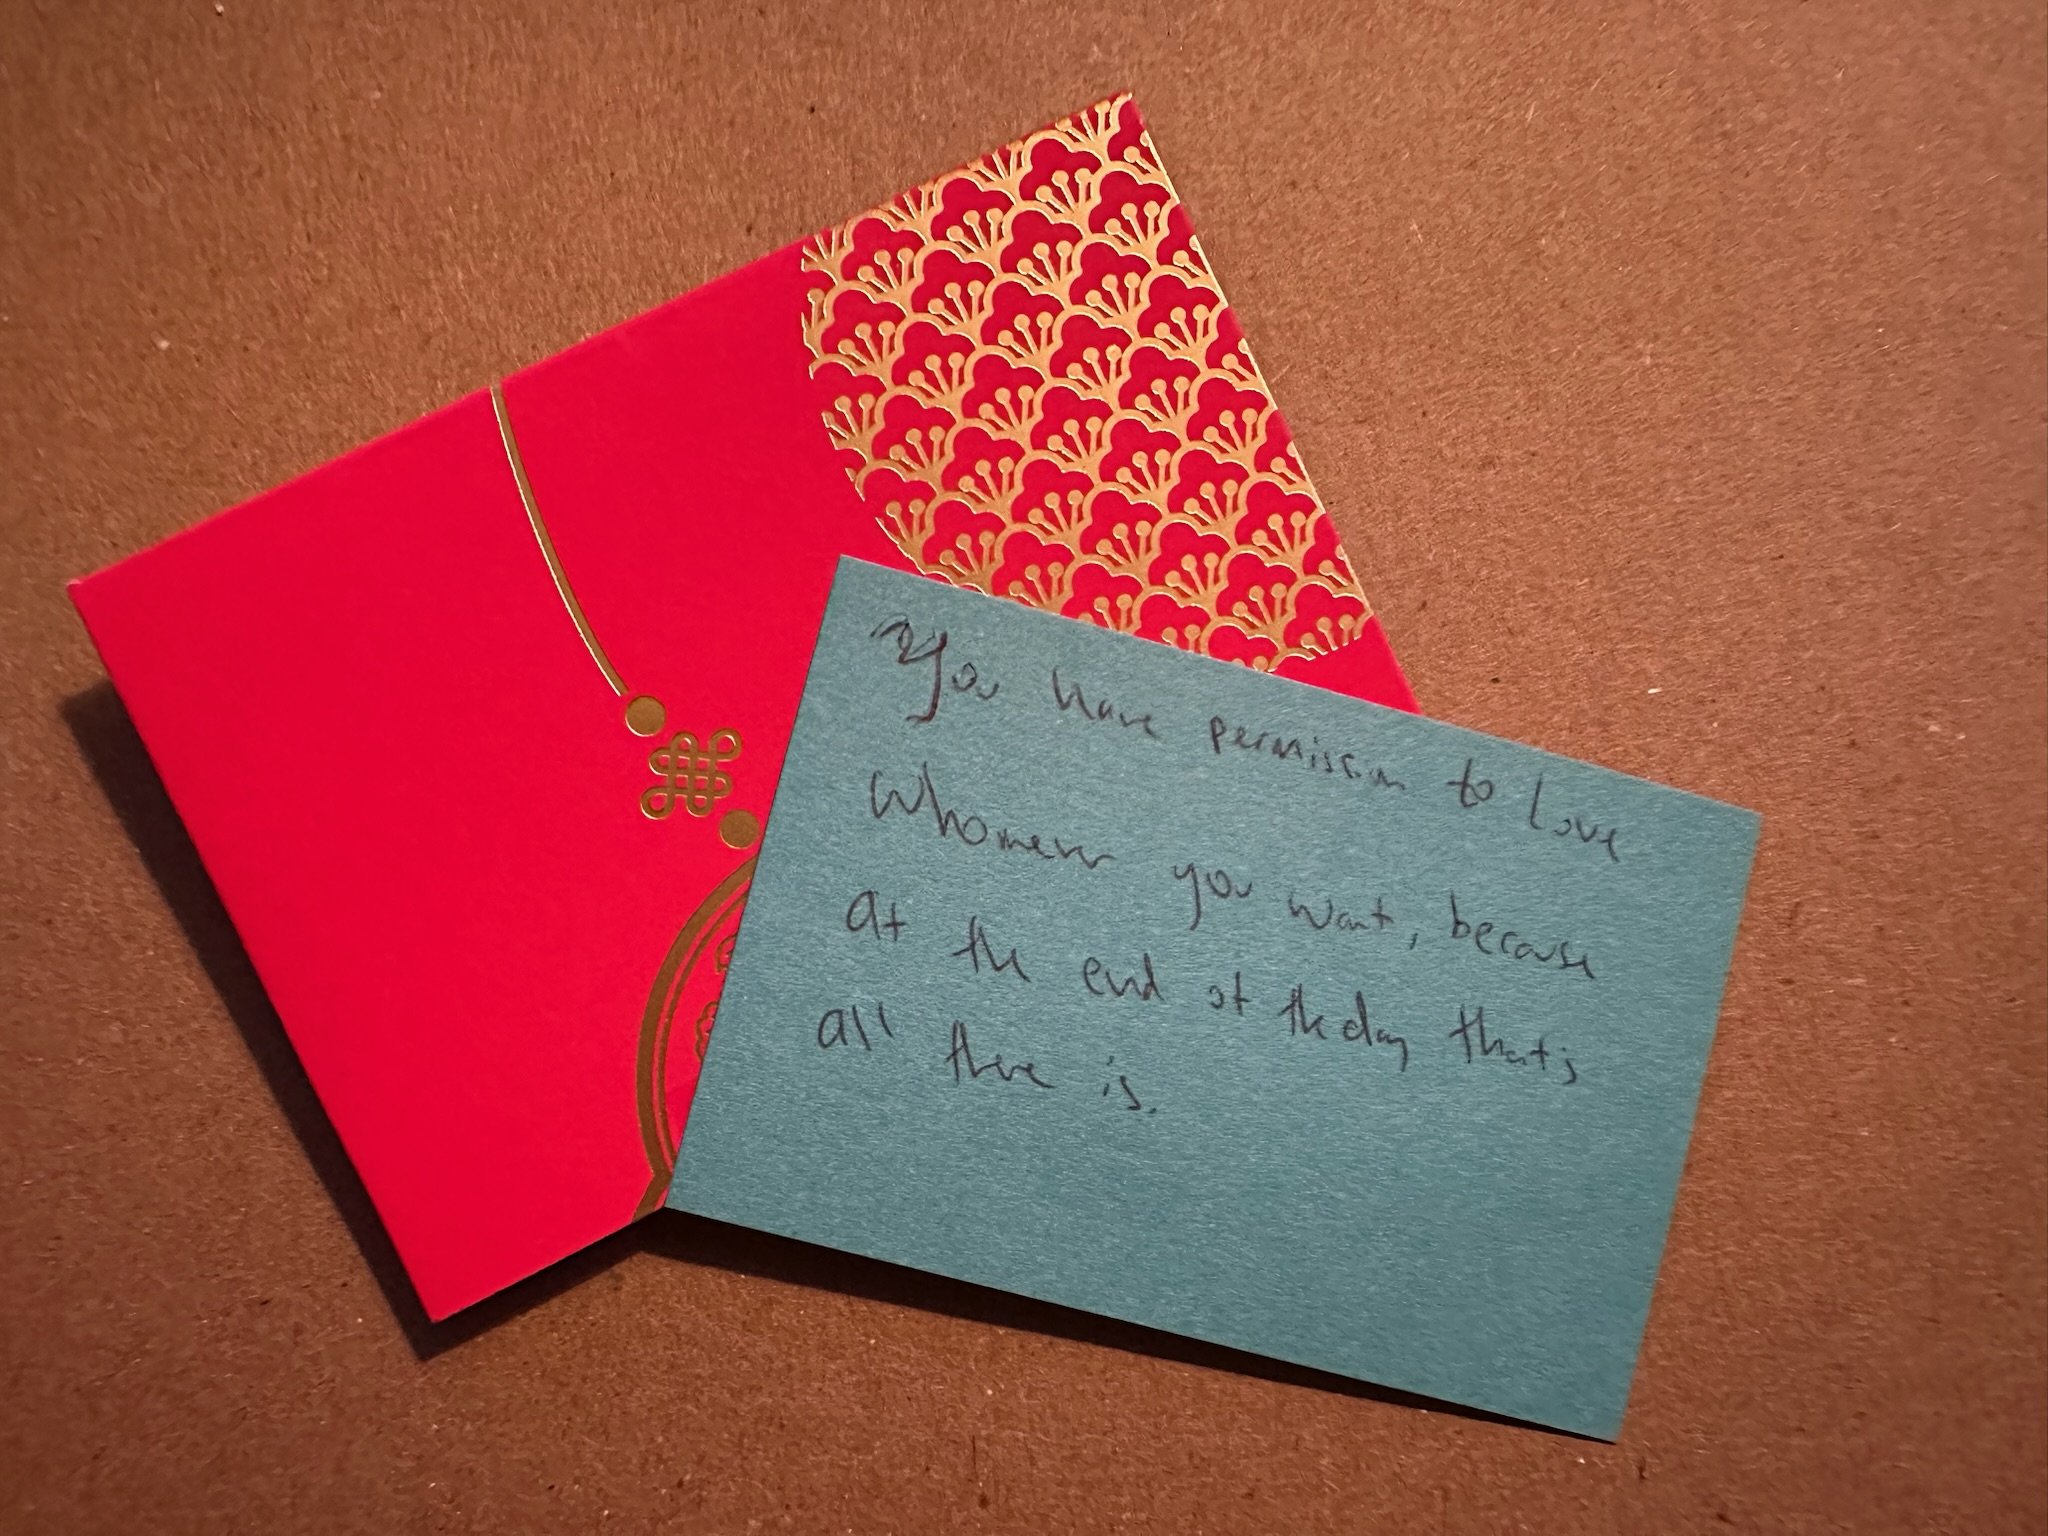 You have permission to love
whomever you want, because
at the end of the day that's
all there is.